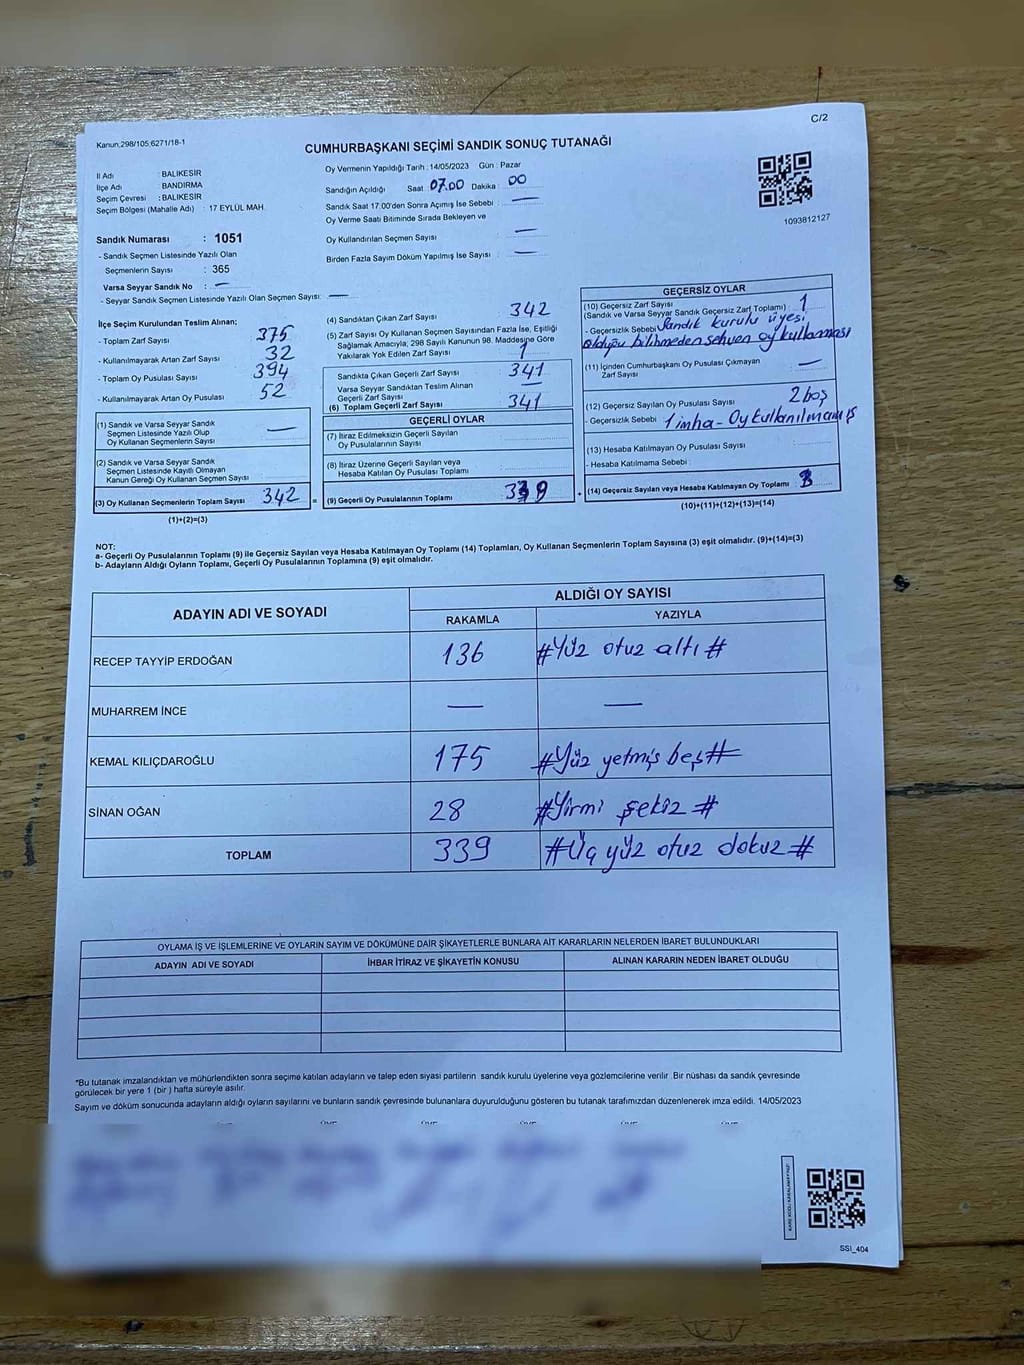 C/2
Kanun,298/105,6271/18-1
CUMHURBAŞKANI SEÇİMİ SANDIK SONUÇ TUTANAĞI
İl Adı : BALIKESİR
İlçe Adı : BANDIRMA
Seçim Çevresi : BALIKESİR
Seçim Bölgesi (Mahalle Adı) : 17 EYLÜL MAH.
Sandık Numarası : 1051
- Sandık Seçmen Listesinde Yazılı Olan
Seçmenlerin Sayısı : 365
Varsa Seyyar Sandık No : —
- Seyyar Sandık Seçmen Listesinde Yazılı Olan Seçmen Sayısı: —
Oy Vermenin Yapıldığı Tarih : 14/05/2023 Gün : Pazar
Sandığın Açıldığı Saat 07.00 Dakika : 00
Sandık Saat 17.00'den Sonra Açımış İse Sebebi : —
Oy Verme Saati Bitiminde Sırada Bekleyen ve
Oy Kullandırılan Seçmen Sayısı : —
Birden Fazla Sayım Döküm Yapılmış İse Sayısı : —
1093812127
İlçe Seçim Kurulundan Teslim Alınan;
- Toplam Zarf Sayısı : 375
- Kullanılmayarak Artan Zarf Sayısı : 32
- Toplam Oy Pusulası Sayısı : 394
- Kullanılmayarak Artan Oy Pusulası : 52
(1) Sandık ve Varsa Seyyar Sandık
Seçmen Listesinde Yazılı Olup
Oy Kullanan Seçmenlerin Sayısı : —
(2) Sandık ve Varsa Seyyar Sandık
Seçmen Listesinde Kayıtlı Olmayan
Kanun Gereği Oy Kullanan Seçmen Sayısı :
(3) Oy Kullanan Seçmenlerin Toplam Sayısı : 342
(1)+(2)=(3)
(4) Sandıktan Çıkan Zarf Sayısı : 342
(5) Zarf Sayısı Oy Kullanan Seçmen Sayısından Fazla İse, Eşitliği
Sağlamak Amacıyla; 298 Sayılı Kanunun 98. Maddesine Göre
Yakılarak Yok Edilen Zarf Sayısı : 1
Sandıkta Çıkan Geçerli Zarf Sayısı : 341
Varsa Seyyar Sandıktan Teslim Alınan
Geçerli Zarf Sayısı : —
(6) Toplam Geçerli Zarf Sayısı : 341
GEÇERLİ OYLAR
(7) İtiraz Edilmeksizin Geçerli Sayılan
Oy Pusulalarının Sayısı :
(8) İtiraz Üzerine Geçerli Sayılan veya
Hesaba Katılan Oy Pusulası Toplamı :
= (9) Geçerli Oy Pusulalarının Toplamı : 339
GEÇERSİZ OYLAR
(10) Geçersiz Zarf Sayısı
(Sandık ve Varsa Seyyar Sandık Geçersiz Zarf Toplamı) : 1
- Geçersizlik Sebebi : Sandık kurulu üyesi
olduğu bilinmeden sehven oy kullanması
(11) İçinden Cumhurbaşkanı Oy Pusulası Çıkmayan
Zarf Sayısı : —
(12) Geçersiz Sayılan Oy Pusulası Sayısı : 2 boş
- Geçersizlik Sebebi : 1 imha - Oy kullanılmamış
(13) Hesaba Katılmayan Oy Pusulası Sayısı :
- Hesaba Katılmama Sebebi :
+ (14) Geçersiz Sayılan veya Hesaba Katılmayan Oy Toplamı : 3
(10)+(11)+(12)+(13)=(14)
NOT:
a- Geçerli Oy Pusulalarının Toplamı (9) ile Geçersiz Sayılan veya Hesaba Katılmayan Oy Toplamı (14) Toplamları, Oy Kullanan Seçmenlerin Toplam Sayısına (3) eşit olmalıdır. (9)+(14)=(3)
b- Adayların Aldığı Oyların Toplamı, Geçerli Oy Pusulalarının Toplamına (9) eşit olmalıdır.
ADAYIN ADI VE SOYADI ALDIĞI OY SAYISI
RAKAMLA YAZIYLA
RECEP TAYYİP ERDOĞAN 136 #Yüz otuz altı#
MUHARREM İNCE — —
KEMAL KILIÇDAROĞLU 175 #Yüz yetmiş beş#
SİNAN OĞAN 28 #Yirmi şekiz#
TOPLAM 339 #Üç yüz otuz dokuz#
OYLAMA İŞ VE İŞLEMLERİNE VE OYLARIN SAYIM VE DÖKÜMÜNE DAİR ŞİKAYETLERLE BUNLARA AİT KARARLARIN NELERDEN İBARET BULUNDUKLARI
ADAYIN ADI VE SOYADI İHBAR İTİRAZ VE ŞİKAYETİN KONUSU ALINAN KARARIN NEDEN İBARET OLDUĞU
*Bu tutanak imzalandıktan ve mühürlendikten sonra seçime katılan adayların ve talep eden siyasi partilerin sandık kurulu üyelerine veya gözlemcilerine verilir. Bir nüshası da sandık çevresinde
görülecek bir yere 1 (bir) hafta süreyle asılır.
Sayım ve döküm sonucunda adayların aldığı oyların sayılarını ve bunların sandık çevresinde bulunanlara duyurulduğunu gösteren bu tutanak tarafımızdan düzenlenerek imza edildi. 14/05/2023
SSI_404